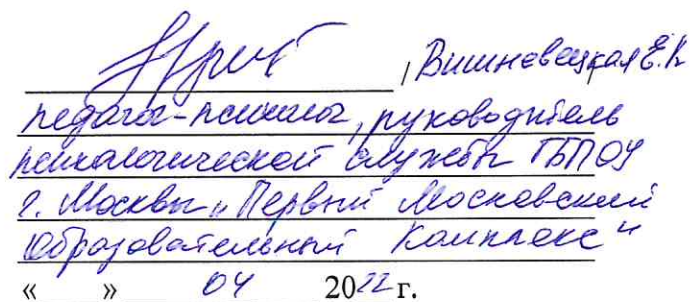 , Вишневецкая Е.К
педагог-психолог, руководитель
психологической службы ГБПОУ
г. Москвы „Первый Московский
Образовательный Комплекс“
« » 04 2022 г.